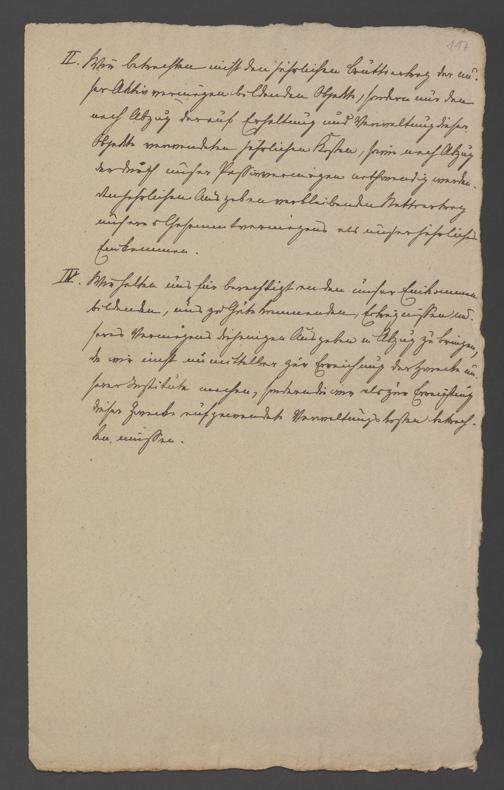 117
II. Wir betrachten nicht den jährlichen Bruttoertrag der un-
ser Aktivvermögen bildenden Objekte, sondern nur den
nach Abzug der auf Erhaltung und Verwaltung dieser
Objekte verwendeten jährlichen Kosten, sowie nach Abzug
der durch unser Passivvermögen nothwendig werden-
den jährlichen Ausgaben verbleibenden Nettoertrag
unseres Gesammtvermögens als unser jährliches
Einkommen.
IV. Wir halten uns für berechtigt von den unser Einkommen
bildenden, uns zu Gute kommenden, Erträgnissen un-
seres Vermögens diejenigen Ausgaben in Abzug zu bringen,
die wir nicht unmittelbar zur Erreichung der Zwecke un-
serer Institute machen, sondern die wir als zur Erreichung
dieser Zwecke aufgewendete Verwaltungskosten betrach-
ten müssen.